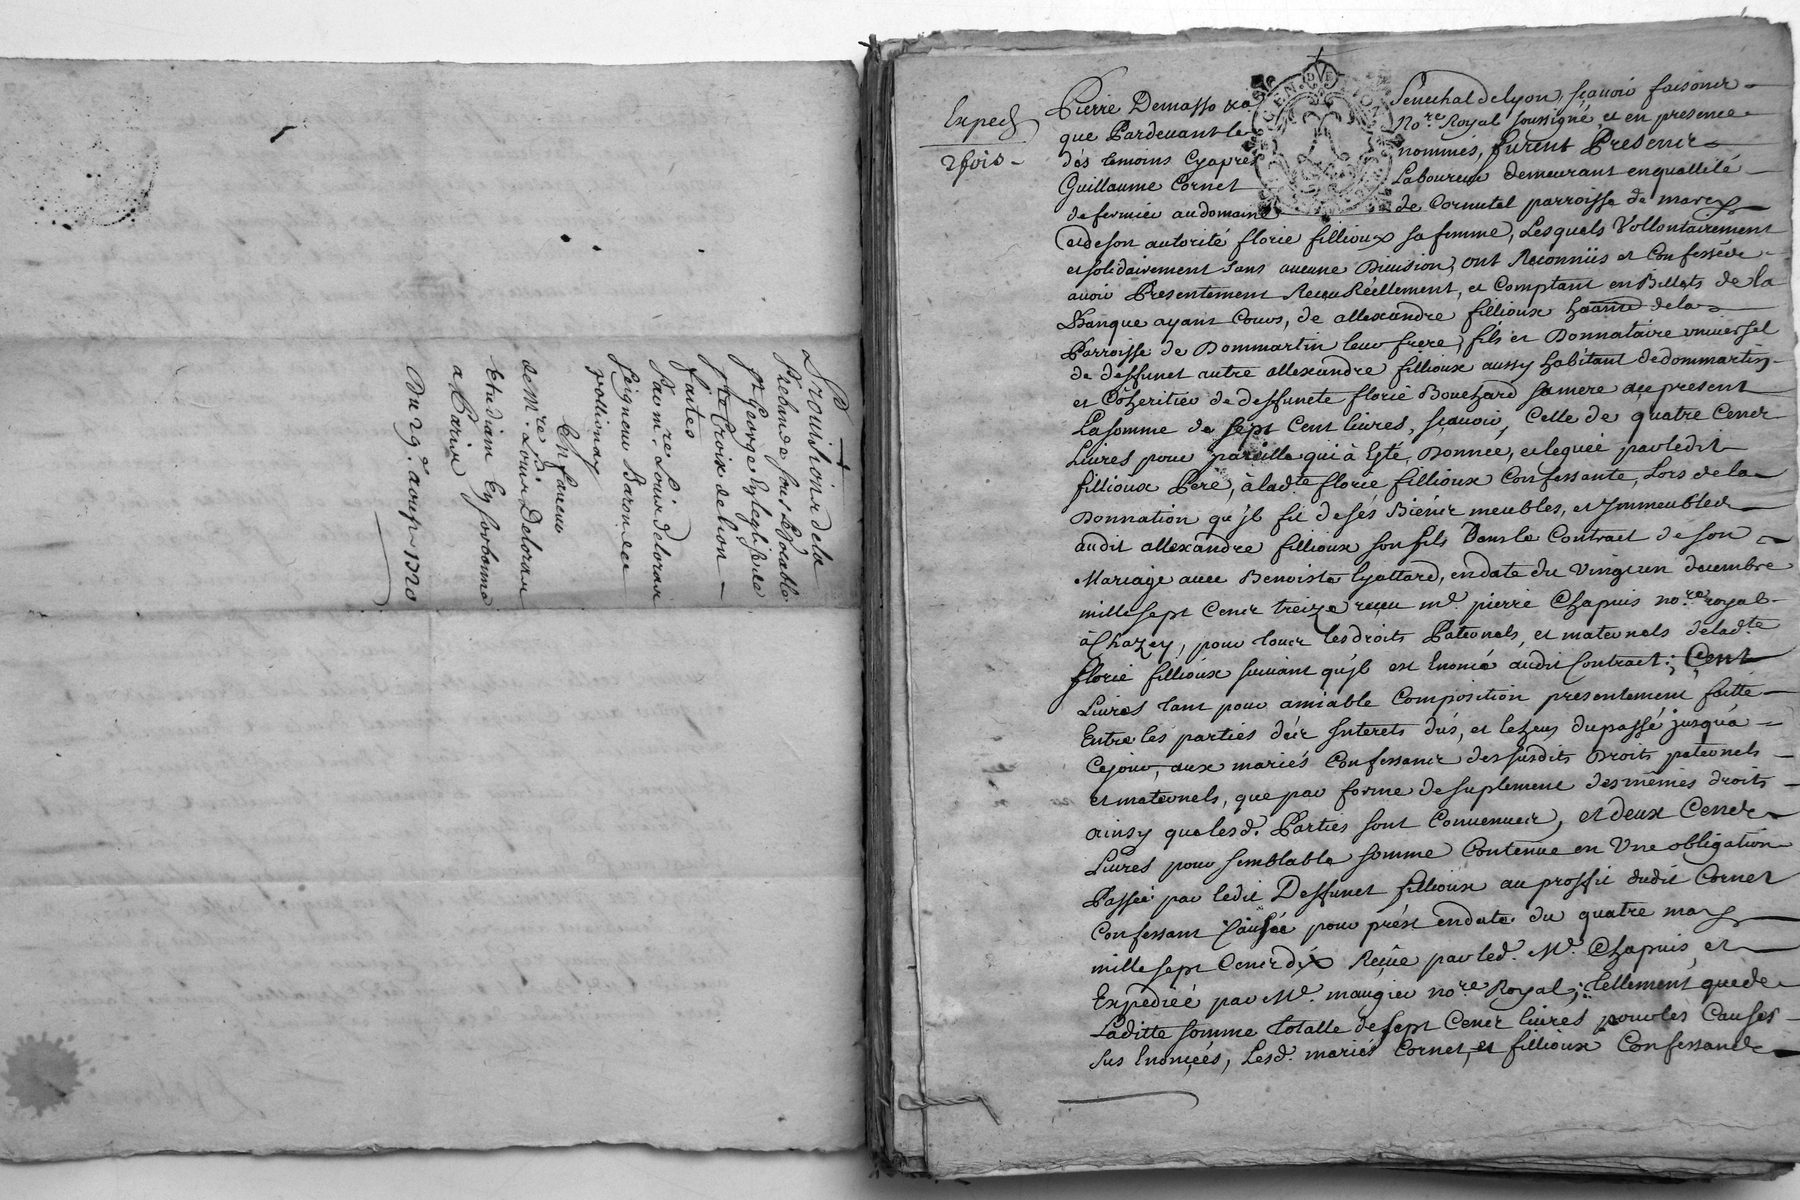 Prouisions de la
Prebande sous le Vocable
St George En leglise de
Ste Croix de Lyon
faites
Par mre. Louis Delorai
Seigneur Baron de
pollionay
En faueur
de Mre. Louis Delorai
Etudiant En Sorbonne
a Paris
Du 29e. aoust 1720
Exped
2 fois
Pierre Demasso
Senechal de lyon, sçauoir faisons
que Pardeuant le
Nore. Royal soussigné, et en presence
des temoins Cyapres
nommés, furent Presents
Guillaume Cornet
Laboureur demeurant en quallité
de fermier au domaine
de Cornutel parroisse de marcy
et de son autorité florie fillioux sa femme, Lesquels Vollontairement
et solidairement sans aucune Diuision, ont Reconnüs et Confessée
auoir Presentement Receu Réellement, et Comptant en Billets de la
Banque ayant Cours, de allexandre fillioux habitant de la
Parroisse de Dommartin leur frere, fils et Donnataire vniuersel
de deffunct autre allexandre fillioux aussy habitant de dommartin
et Coheritier de deffuncte florie Bouchard sa mere acepresent
La somme de sept Cent liures, sçauoir, Celle de quatre Cents
Liures pour pareille qui à Esté, Donnée, et leguée par ledit
fillioux Pere, à ladte florie fillioux Confessante, Lors de la
Donnation qu'jl fit de sés Biens meubles, et Jmmeubles
audit allexandre fillioux son fils Dans le Contract de son
Mariage auec Benoiste Guottard, en date du vingt un decembre
mille sept Cents treize receu me. pierre Chapuis nore. royal
à Chazey, pour tous les droits Paternels, et maternels de ladte
florie fillioux suiuant qu'jl est Enoncé audit Contract; Cent
Liures tant pour amiable Composition presentement faitte
Entre les parties dés Interets dus, et Echeus du passé jusqu'à
Cejour, aux mariés Confessants des susdits Droits paternels
et maternels, que par forme de suplement des mêmes droits
ainsy que lesd. Parties sont Conuenuës, et deux Cents
Liures pour semblable somme Contenue en Vne obligation
Passée par ledit Deffunct fillioux au proffit dudit Cornet
Confessant Causée pour prést en date du quatre may
mille sept Cents dix Reçüe par led. Me. Chapuis, et
Expediée par Me. maugier nore Royal; tellement que de
Laditte somme totalle de sept Cents liures pour les Causes
sus Enoncées, Lesd. mariés Cornet, et fillioux Confessants